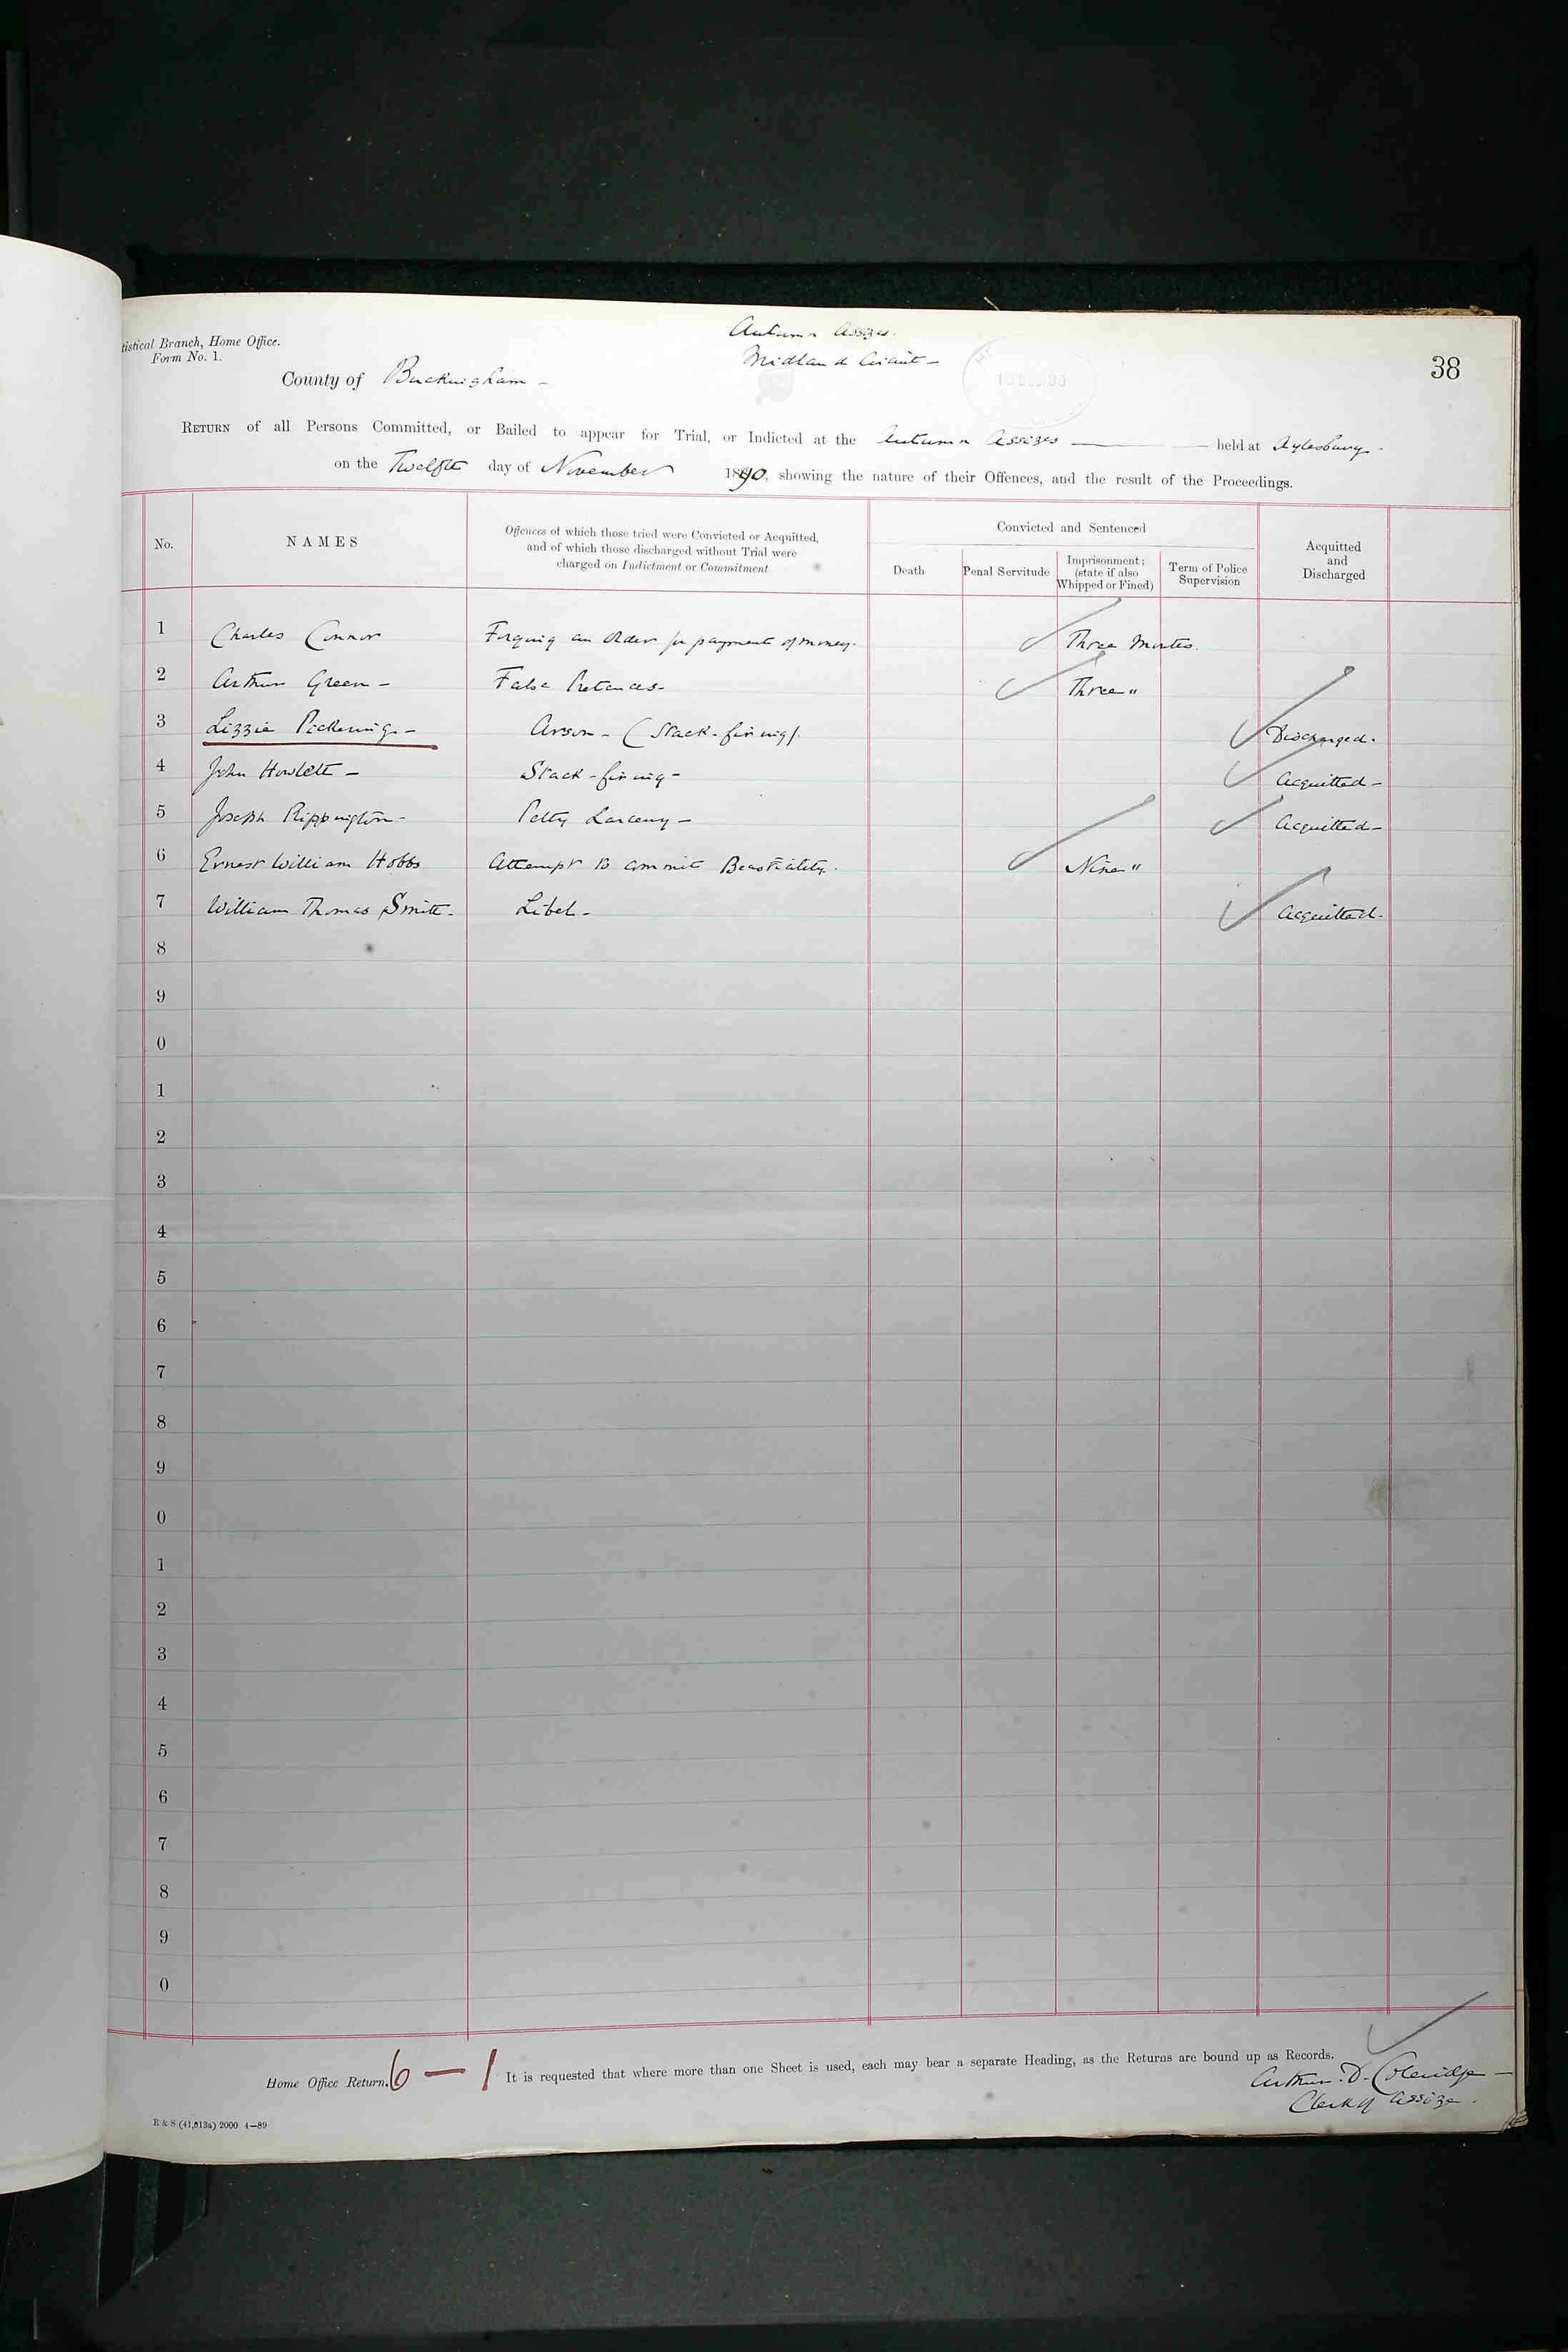 Autumn Assizes.
Midland Circuit –
38
tistical Branch, Home Office.
Form No. 1.
County of Buckingham –
RETURN of all Persons Committed, or Bailed to appear for Trial, or Indicted at the Autumn Assizes — held at Aylesbury –
on the Twelfth day of November 1890, showing the nature of their Offences, and the result of the Proceedings.
No.
NAMES
Offences of which those tried were Convicted or Acquitted,
and of which those discharged without Trial were
charged on Indictment or Commitment
Convicted and Sentenced
Death
Penal Servitude
Imprisonment;
(state if also
Whipped or Fined)
Term of Police
Supervision
Acquitted
and
Discharged
1 Charles Connor Forging an Order for payment of money. Three Months.
2 Arthur Green – False Pretences – Three "
3 Lizzie Pickering – Arson – (Stack-firing). Discharged.
4 John Howlett – Stack-firing – Acquitted –
5 Joseph Rippington – Petty Larceny – Acquitted –
6 Ernest William Hobbs Attempt to commit Beastiality. Nine "
7 William Thomas Smith – Libel – Acquitted.
8
9
0
1
2
3
4
5
6
7
8
9
0
1
2
3
4
5
6
7
8
9
0
Home Office Return. 6 — 1 It is requested that where more than one Sheet is used, each may bear a separate Heading, as the Returns are bound up as Records.
Arthur. D. Coleridge –
Clerk of Assize.
R & S (41,813a) 2000 4—89